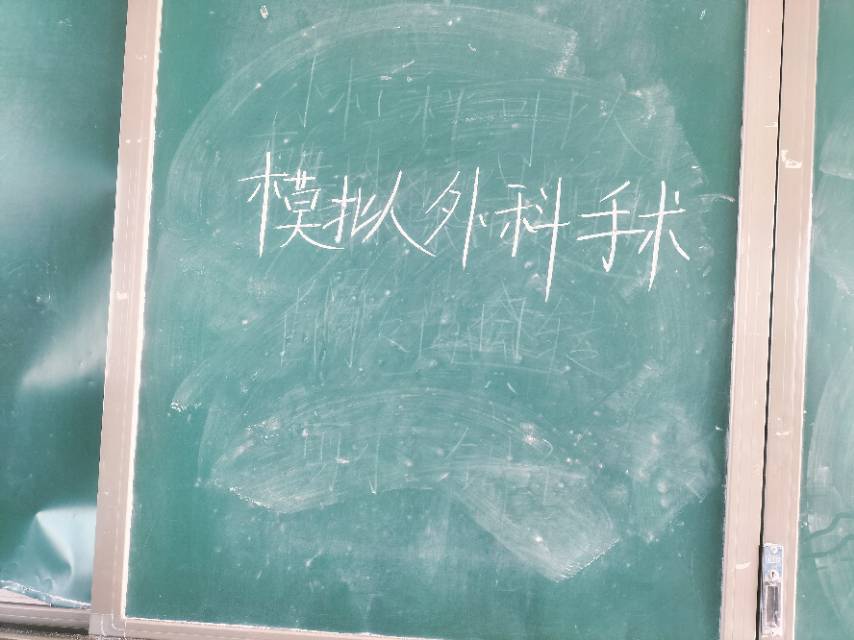 模拟外科手术